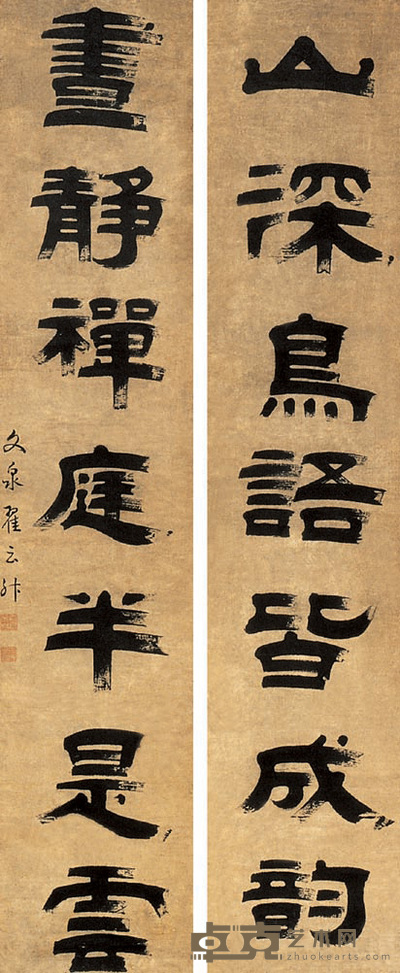 山深鳥語皆成韵
晝靜禪庭半是雲
文泉翟云升
卓克艺术网
zhuokearts.com